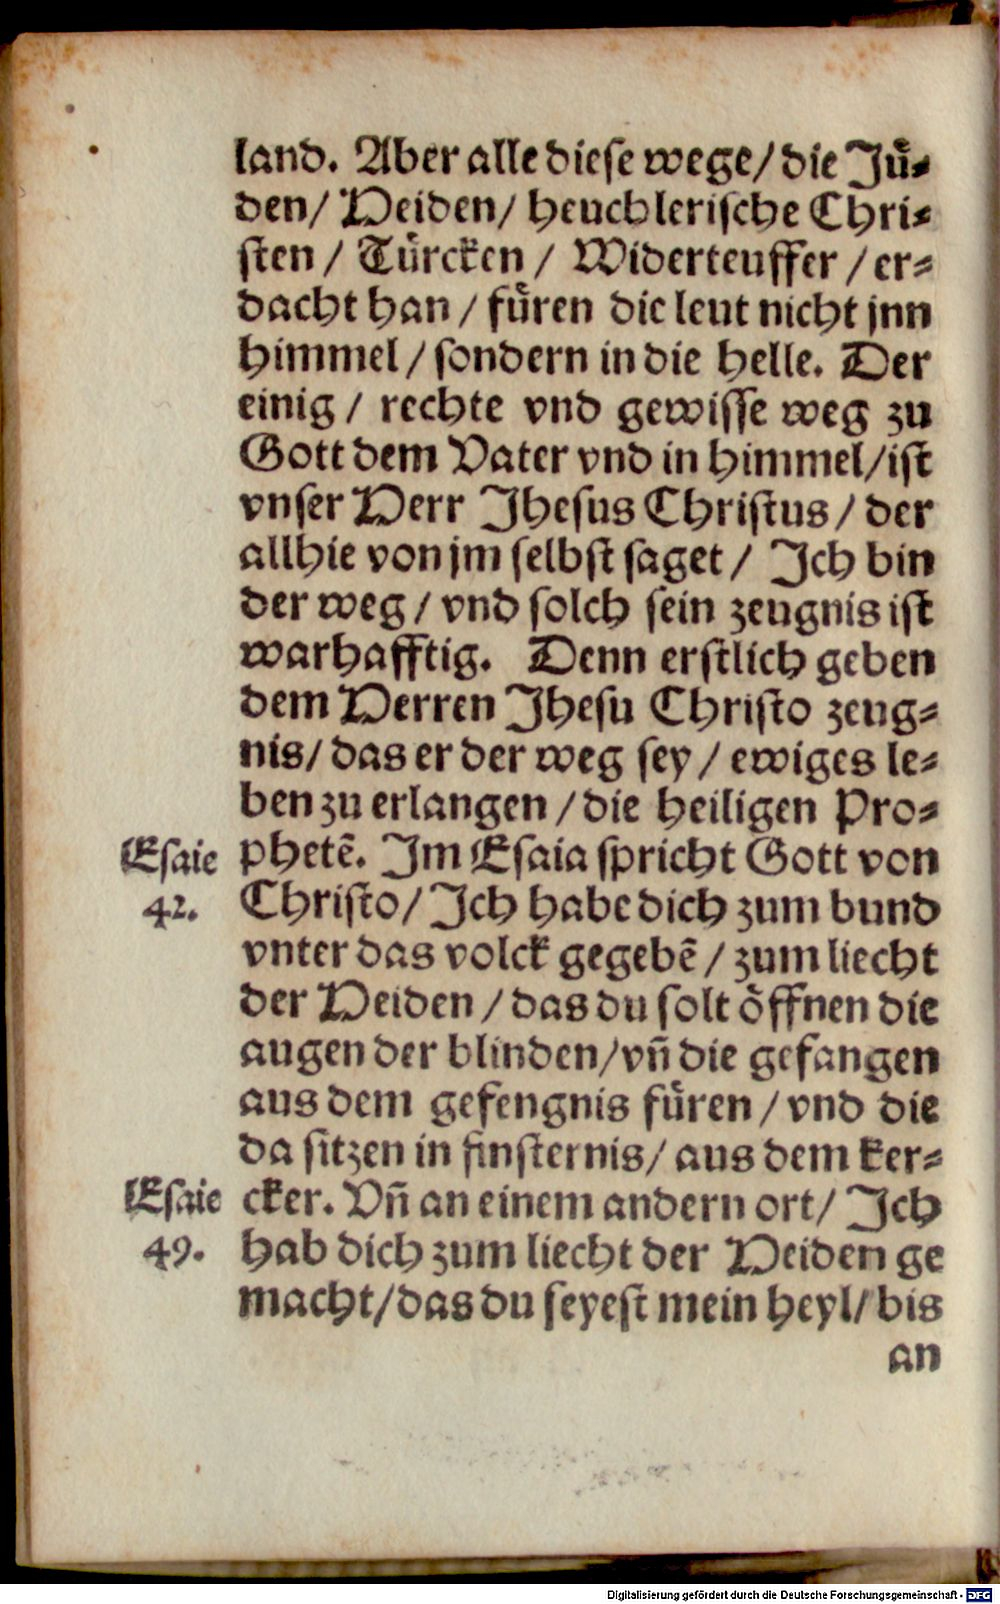 land. Aber alle diese wege/ die Juͤ-
den/ Heiden/ heuchlerische Chri-
sten / Tuͤrcken / Widerteuffer / er-
dacht han / fuͤren die leut nicht jnn
himmel / sondern in die helle. Der
einig / rechte vnd gewisse weg zu
Gott dem Vater vnd in himmel/ist
vnser Herr Jhesus Christus / der
allhie von jm selbst saget / Ich bin
der weg / vnd solch sein zeugnis ist
warhafftig. Denn erstlich geben
dem Herren Jhesu Christo zeug-
nis/ das er der weg sey / ewiges le-
ben zu erlangen / die heiligen Pro-
Esaie phetē. Im Esaia spricht Gott von
42. Christo/ Ich habe dich zum bund
vnter das volck gegebē / zum liecht
der Heiden / das du solt oͤffnen die
augen der blinden/vn̄ die gefangen
aus dem gefengnis fuͤren / vnd die
da sitzen in finsternis/ aus dem ker-
Esaie cker. Vn̄ an einem andern ort/ Ich
49. hab dich zum liecht der Heiden ge
macht/das du seyest mein heyl/ bis
an
Digitalisierung gefördert durch die Deutsche Forschungsgemeinschaft - DFG